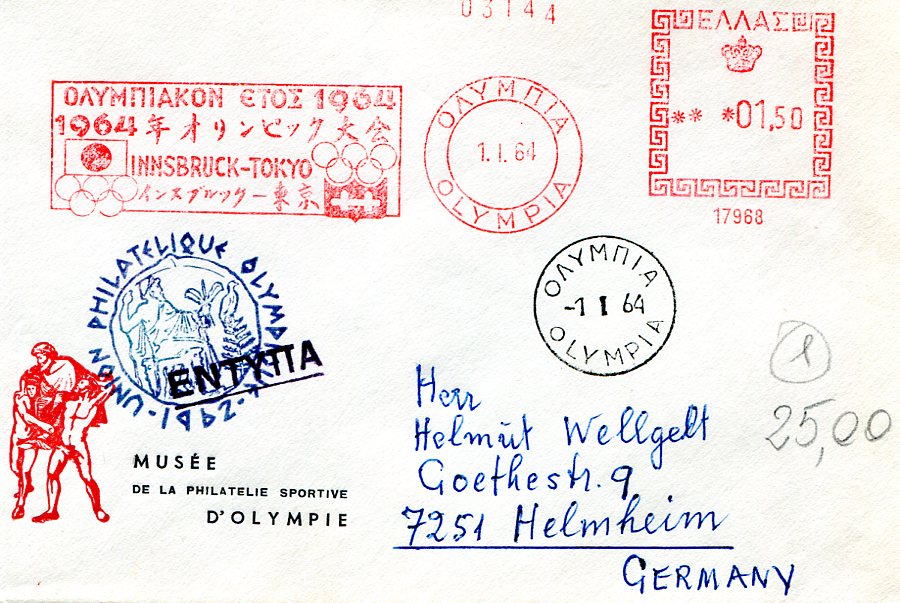 03144
ΕΛΛΑΣ
** *01,50
17968
ΟΛΥΜΠΙΑΚΟΝ ΕΤΟΣ 1964
1964年オリンピック大会
INNSBRUCK-TOKYO
インスブルック-東京
ΟΛΥΜΠΙΑ
1.I.64
OLYMPIA
ΟΛΥΜΠΙΑ
-1 I 64
OLYMPIA
UNION PHILATELIQUE
ΕΝΤΥΠΑ
MUSÉE
DE LA PHILATELIE SPORTIVE
D'OLYMPIE
Herr
Helmut Wellgelt
Goethestr. 9
7251 Helmheim
GERMANY
1
25,00